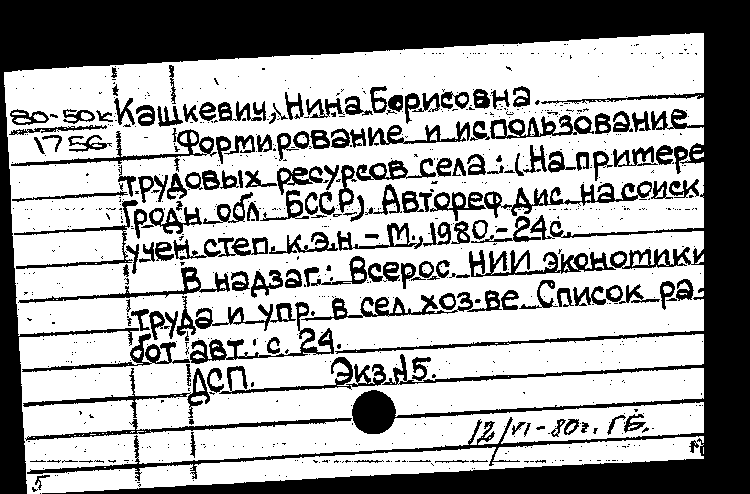 80-50к Кашкевич, Нина Борисовна.
1756 Формирование и использование
трудовых ресурсов села : (На примере
Гродн. обл. БССР). Автореф. дис. на соиск.
учен. степ. к.э.н. - М., 1980. - 24с.
В надзаг.: Всерос. НИИ экономики
труда и упр. в сел. хоз-ве. Список ра-
бот авт.: с. 24.
ДСП. Экз. №5.
12/VI-80г. ГБ.
5